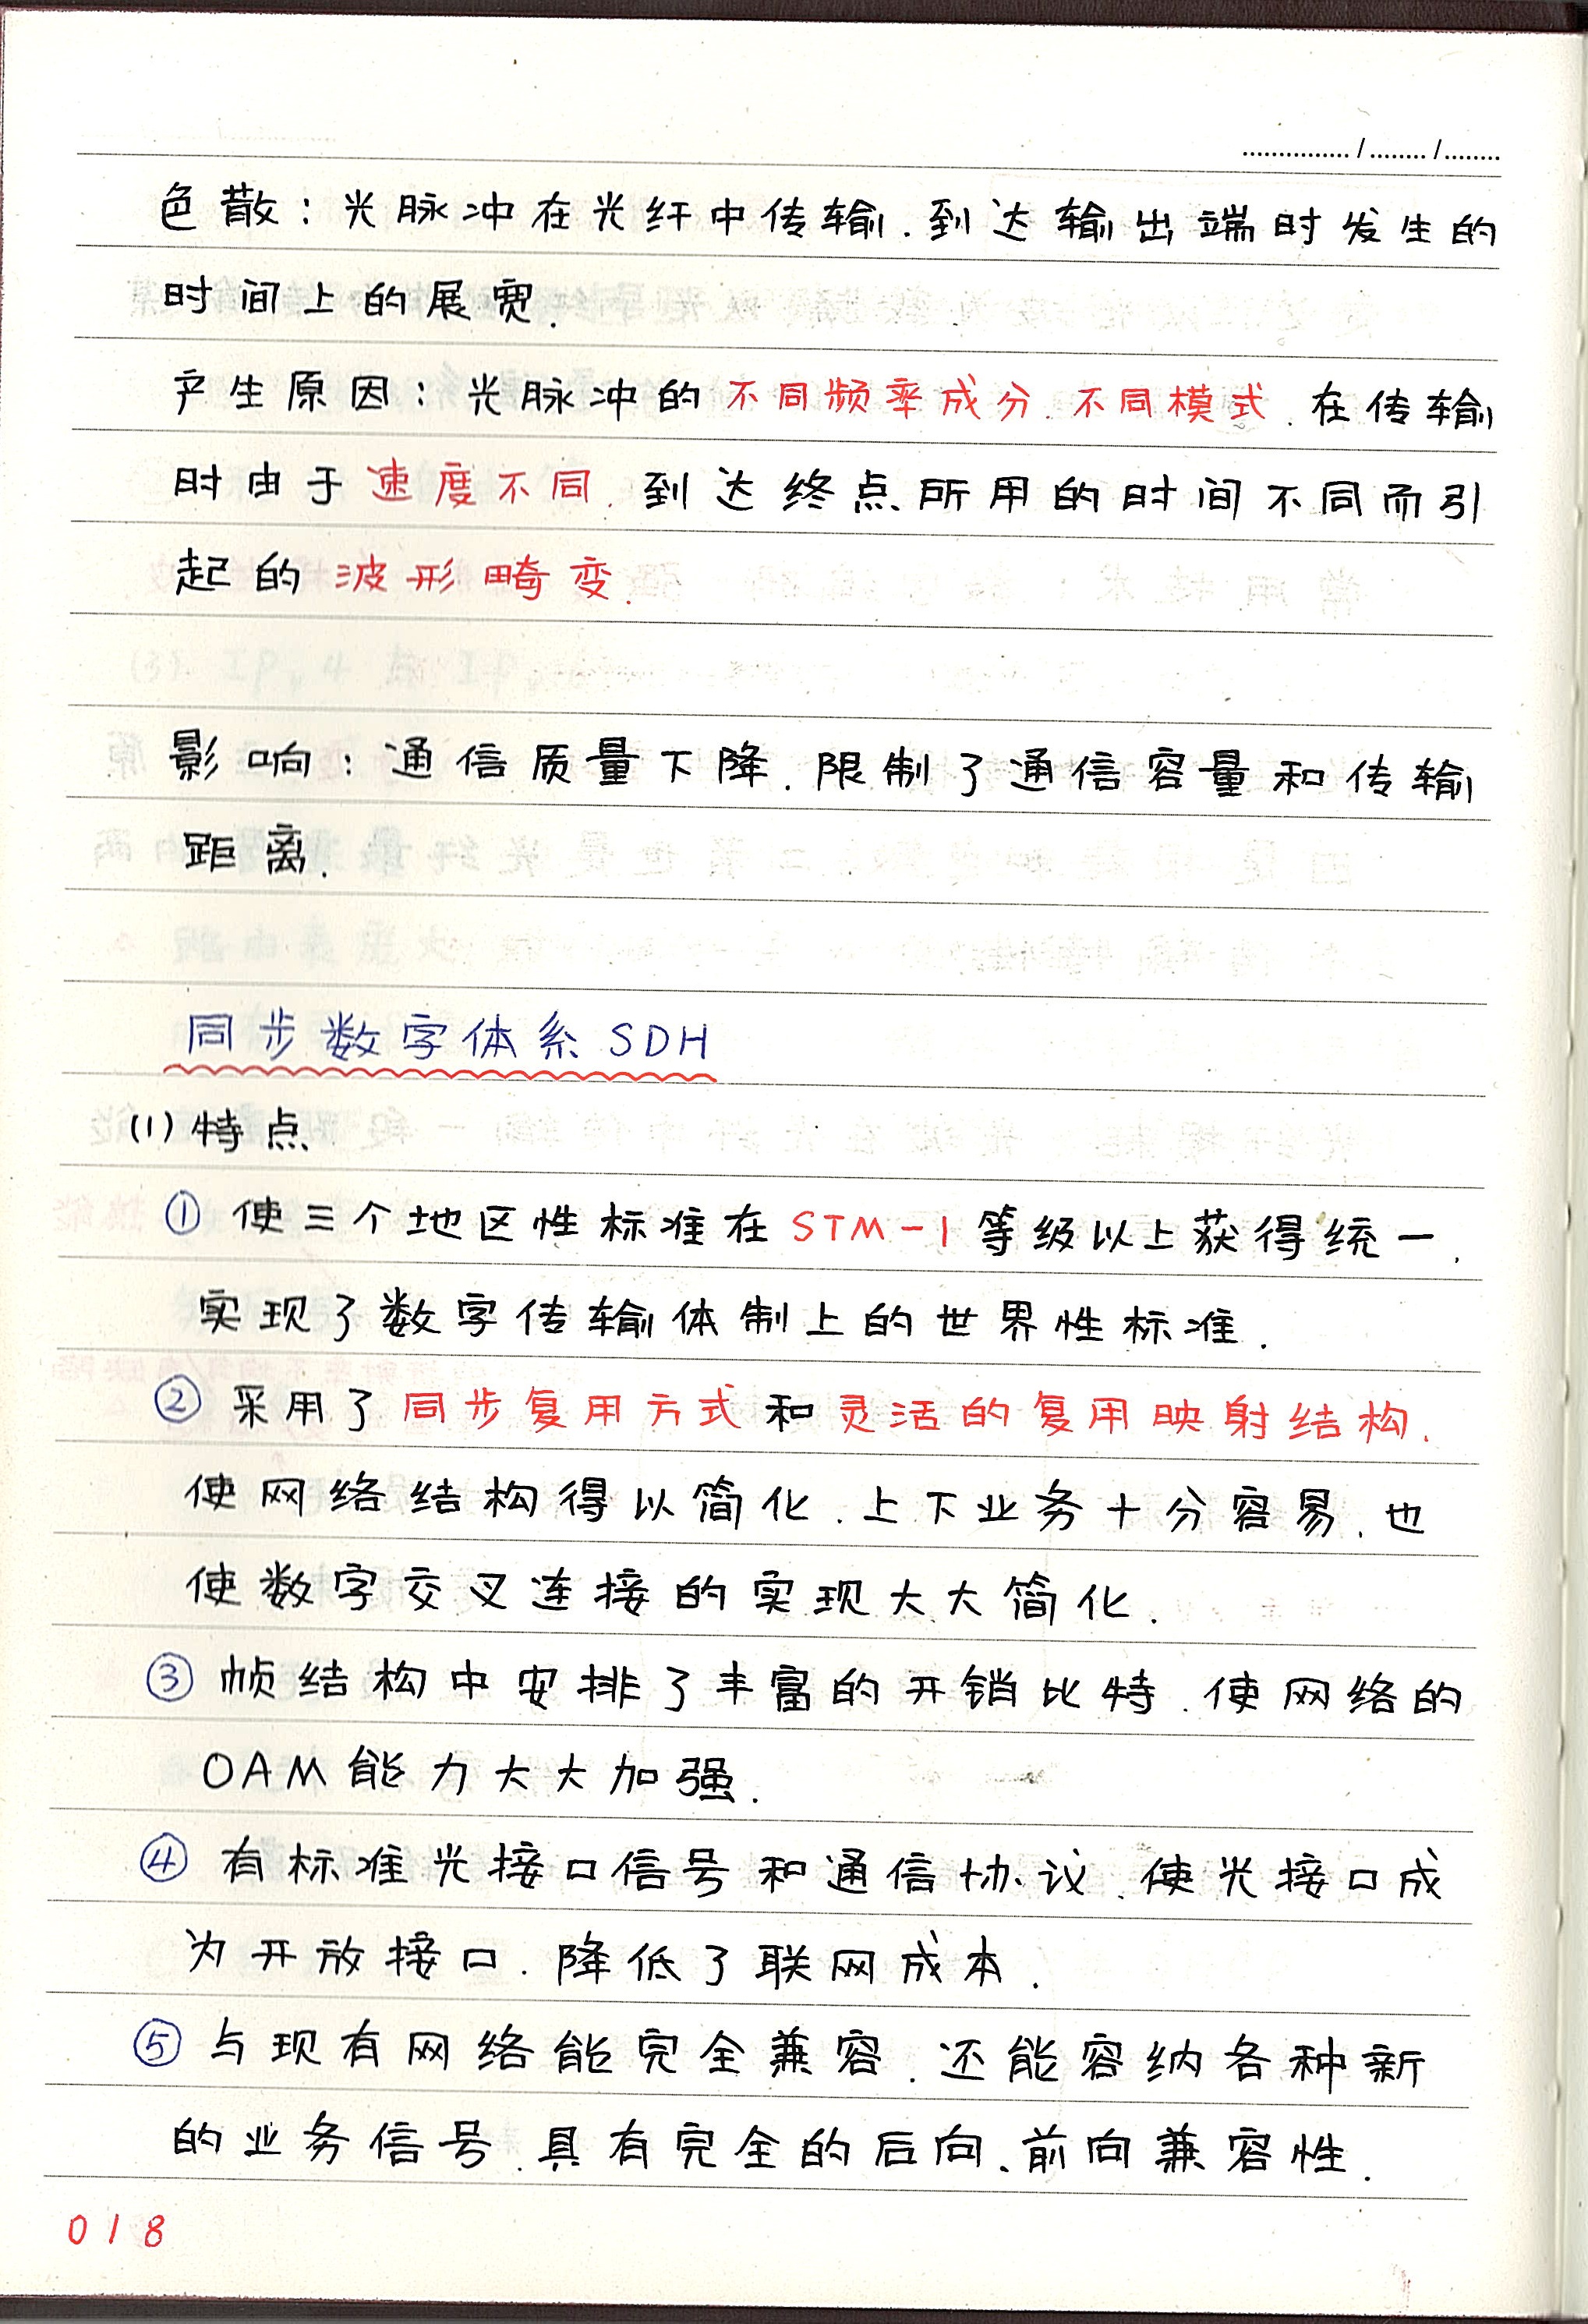 色散：光脉冲在光纤中传输.到达输出端时发生的
时间上的展宽.
产生原因：光脉冲的不同频率成分.不同模式.在传输
时由于速度不同.到达终点所用的时间不同而引
起的波形畸变.
影响：通信质量下降.限制了通信容量和传输
距离.
同步数字体系SDH
(1)特点
① 使三个地区性标准在STM-1等级以上获得统一.
实现了数字传输体制上的世界性标准.
② 采用了同步复用方式和灵活的复用映射结构.
使网络结构得以简化.上下业务十分容易.也
使数字交叉连接的实现大大简化.
③ 帧结构中安排了丰富的开销比特.使网络的
OAM能力大大加强.
④ 有标准光接口信号和通信协议.使光接口成
为开放接口.降低了联网成本.
⑤ 与现有网络能完全兼容.还能容纳各种新
的业务信号.具有完全的后向、前向兼容性.
018